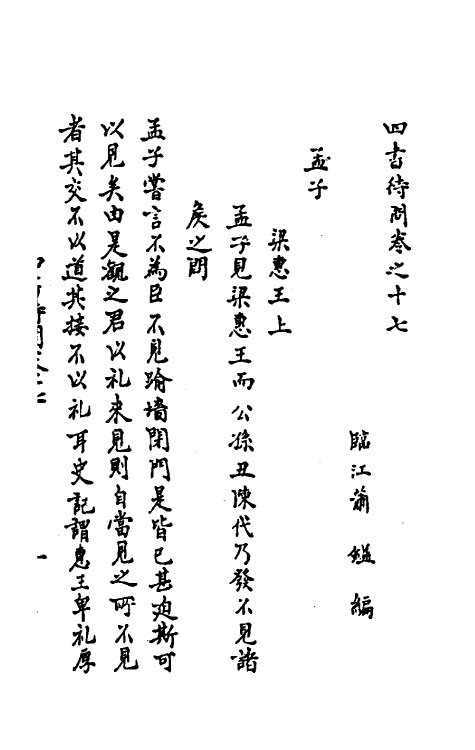 四书待问卷之十七
臨江蕭 鎰 編
孟子
梁惠王上
孟子見梁惠王而公孫丑陳代乃發不見諸
侯之問
孟子嘗言不為臣不見踰墻閉門是皆已甚迫斯可
以見矣由是觀之君以礼來見則自當見之所不見
者其交不以道其接不以礼耳史記謂惠王卑礼厚
一